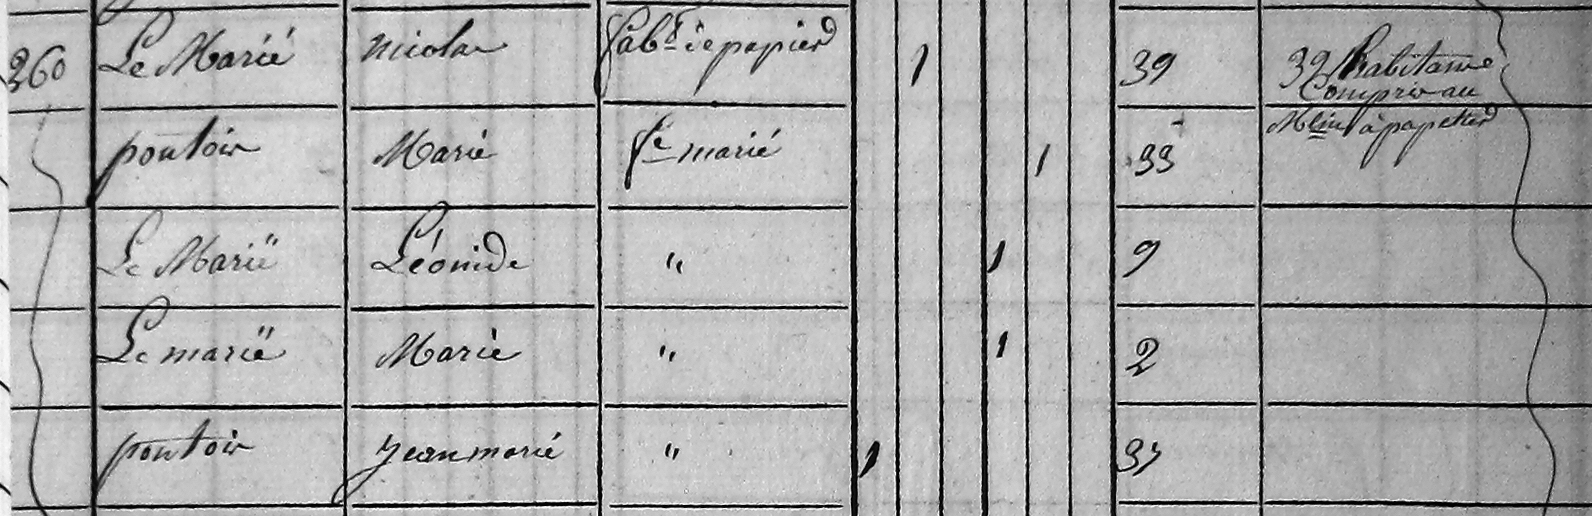 260 Le Marié nicolas fabt de papier 1 39 39 habitans
Compris au
Mlin à papetier
pontoir Marie fe marié 1 33
Le Marië Léonide " 1 9
Le marië Marie " 1 2
pontoir jean marié " 1 37